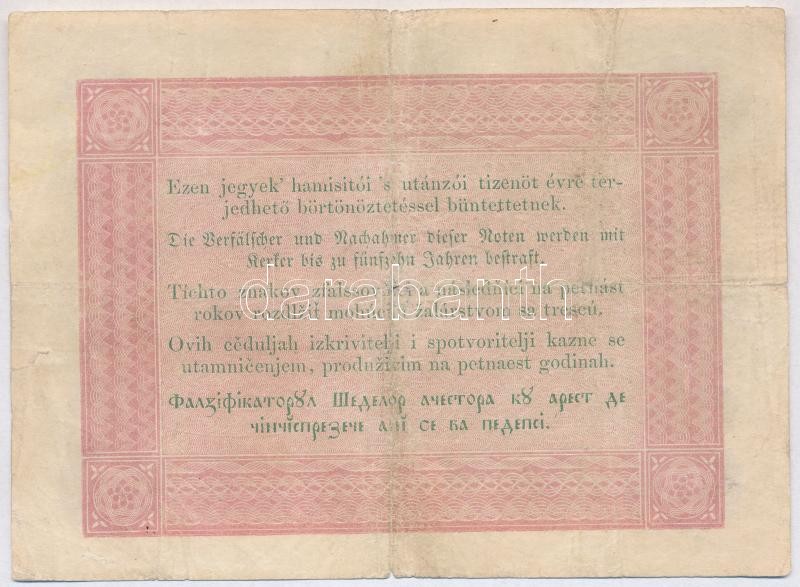 Ezen jegyek' hamisitói 's utánzói tizenöt évre ter-
jedhető börtönöztetéssel büntettetnek.
Die Verfälscher und Nachahmer dieser Noten werden mit
Kerker bis zu fünfzehn Jahren bestraft.
Tichto znakov a následňici na petnást
rokov žalárstvom sa trescú.
darabanth
Ovih cĕduljah izkrivitelji i spotvoritelji kazne se
utamničenjem, produživim na petnaest godinah.
Фалꙁіфікаторꙋл Шеделор ачестора кꙋ арест де
чінчіспреꙁече аnї се ва педепсі.